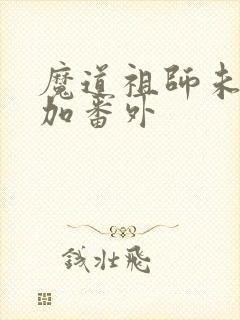 魔道祖師未
加番外
钱壮飛